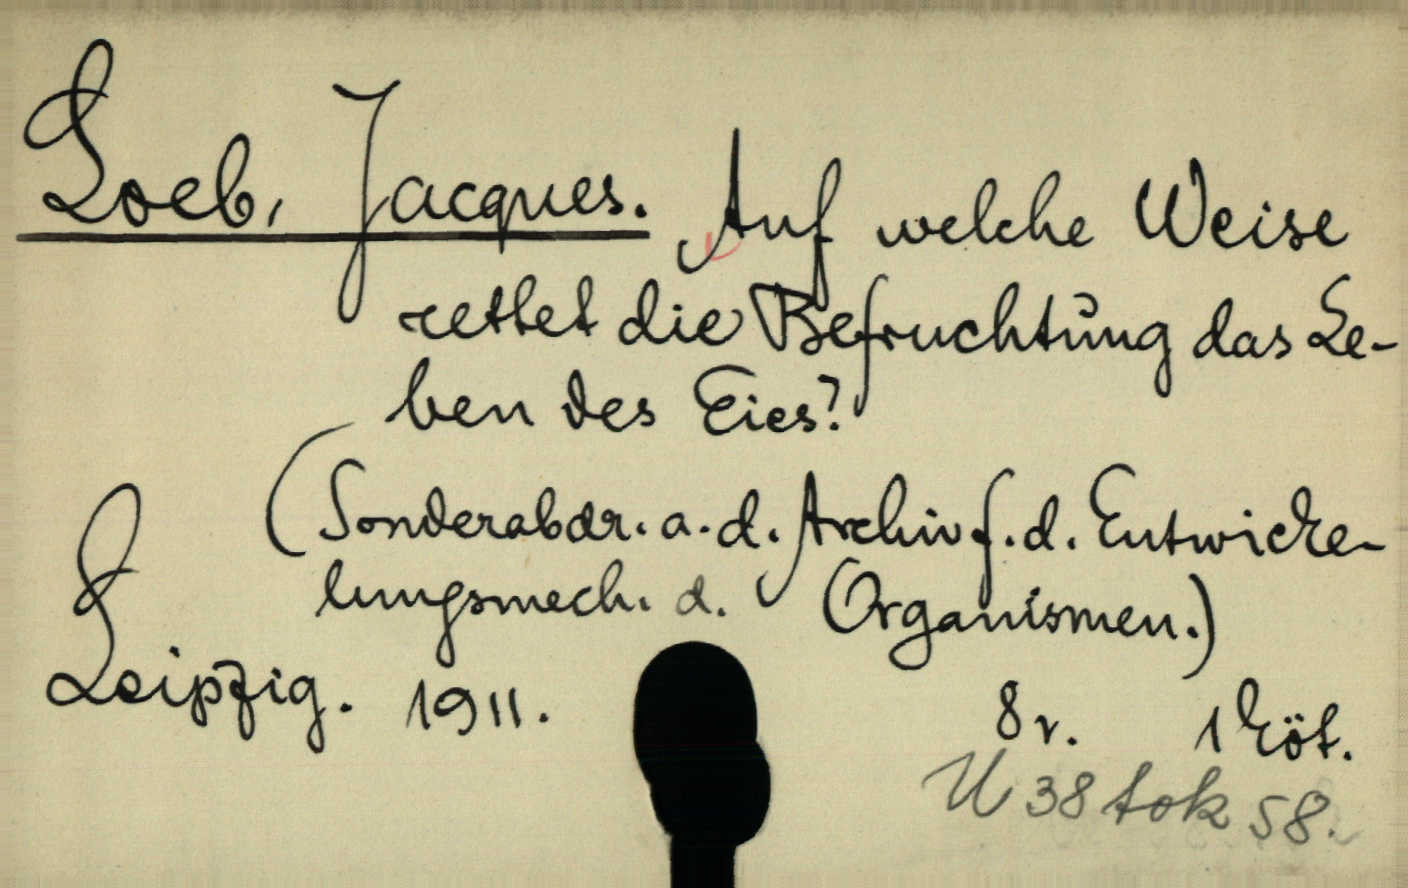 Loeb, Jacques. Auf welche Weise
rettet die Befruchtung das Le-
ben des Eies?
(Sonderabdr. a. d. Archiv f. d. Entwicke-
lungsmech. d. Organismen.)
Leipzig. 1911. 8r. 1 köt.
U 38 tok 58.